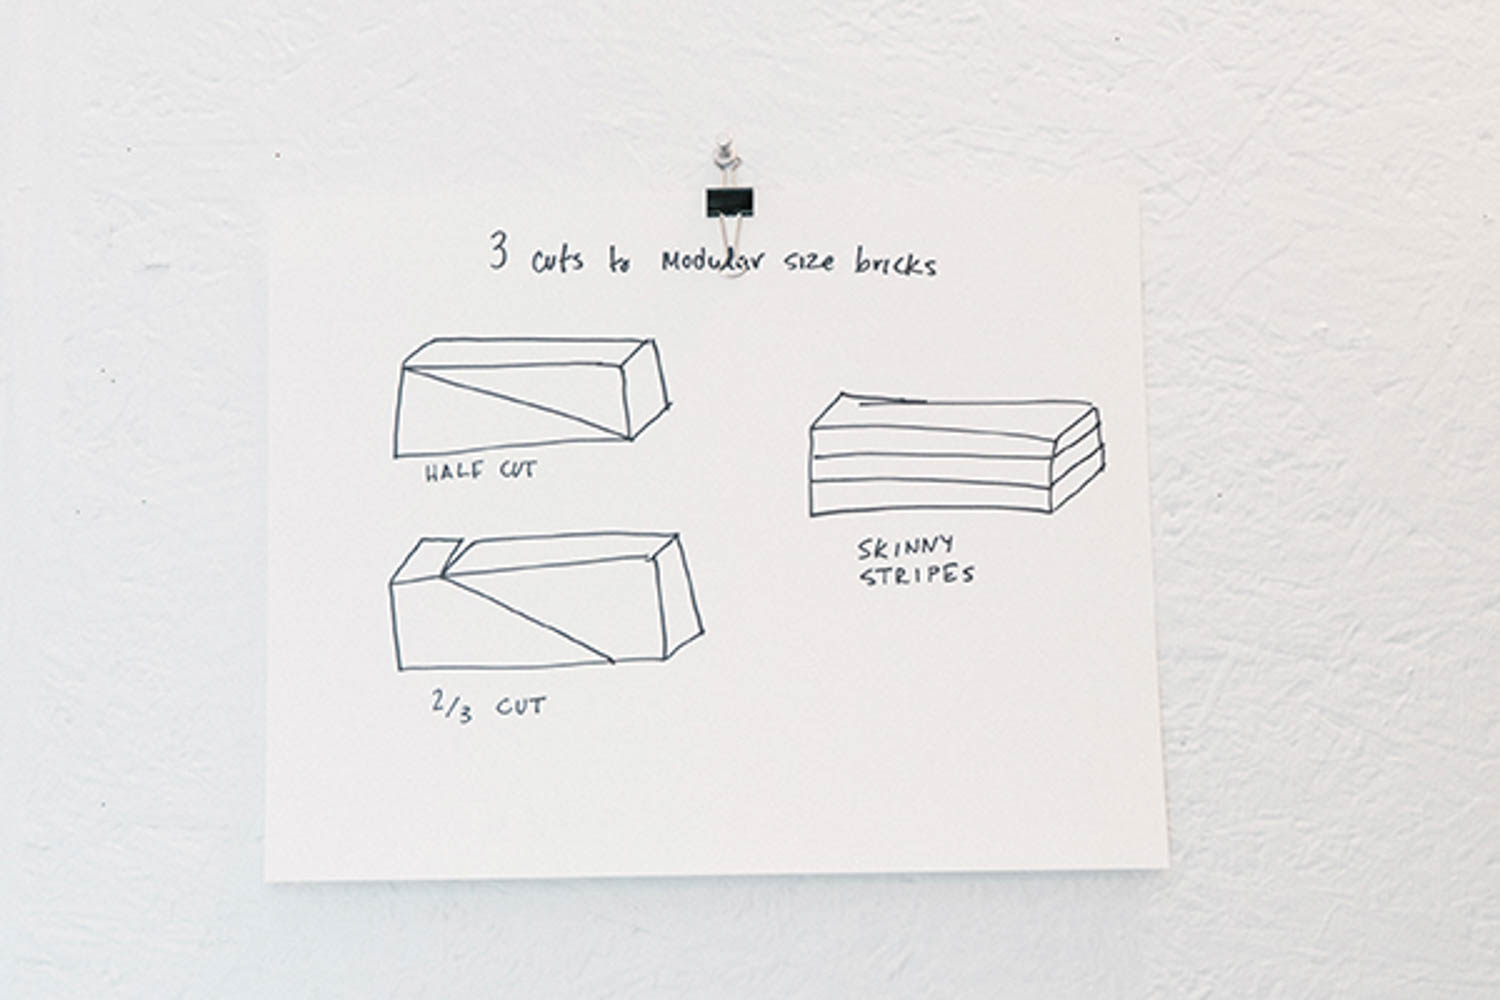 3 cuts to Modular size bricks
HALF CUT
2/3 CUT
SKINNY
STRIPES